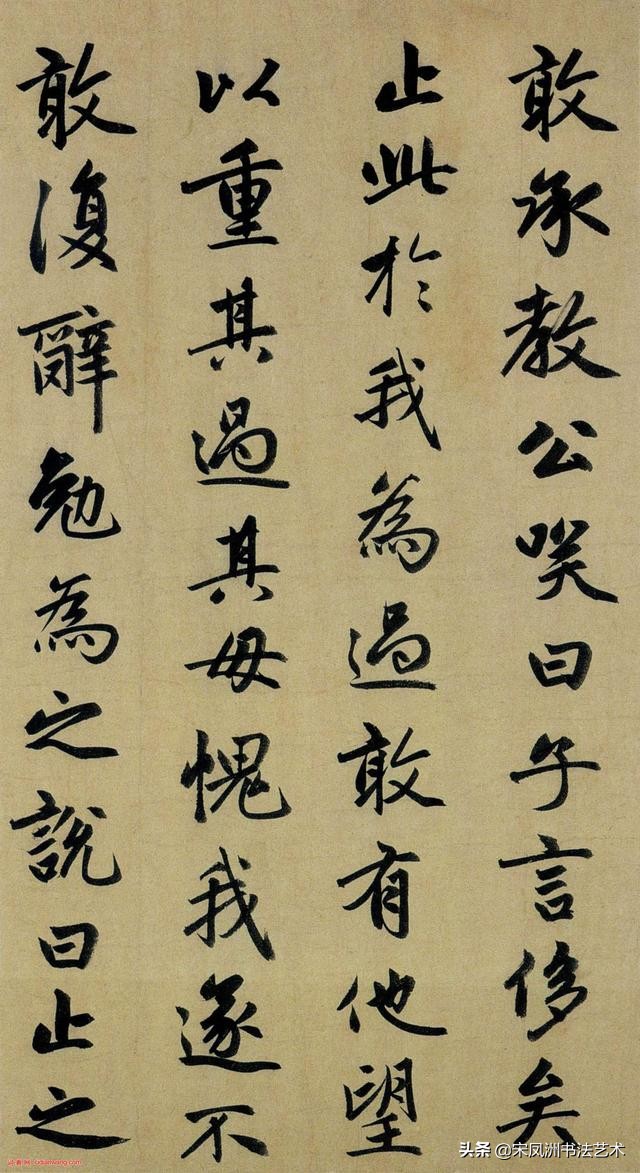 敢承教公笑曰子言侈矣
止此於我為過敢有他望
以重其過其毋愧我遂不
敢復辭勉為之說曰止之
头条 @宋凤洲书法艺术